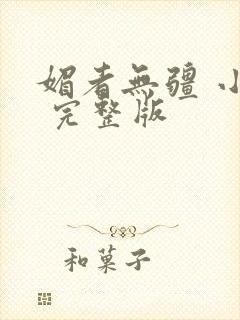 媚者無疆 小
完整版
和菓子